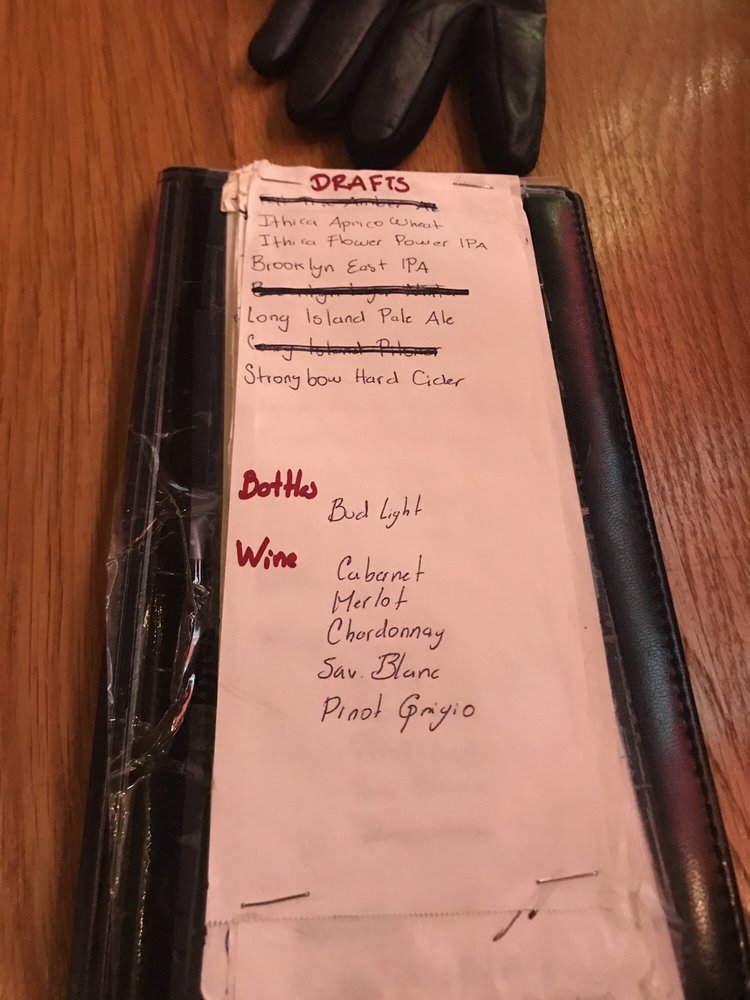 DRAFTS
Ithica Aprico Wheat
Ithica Flower Power IPA
Brooklyn East IPA
Long Island Pale Ale
Long Island Pilsner
Strongbow Hard Cider
Bottles
Bud Light
Wine
Cabernet
Merlot
Chardonnay
Sav. Blanc
Pinot Grigio